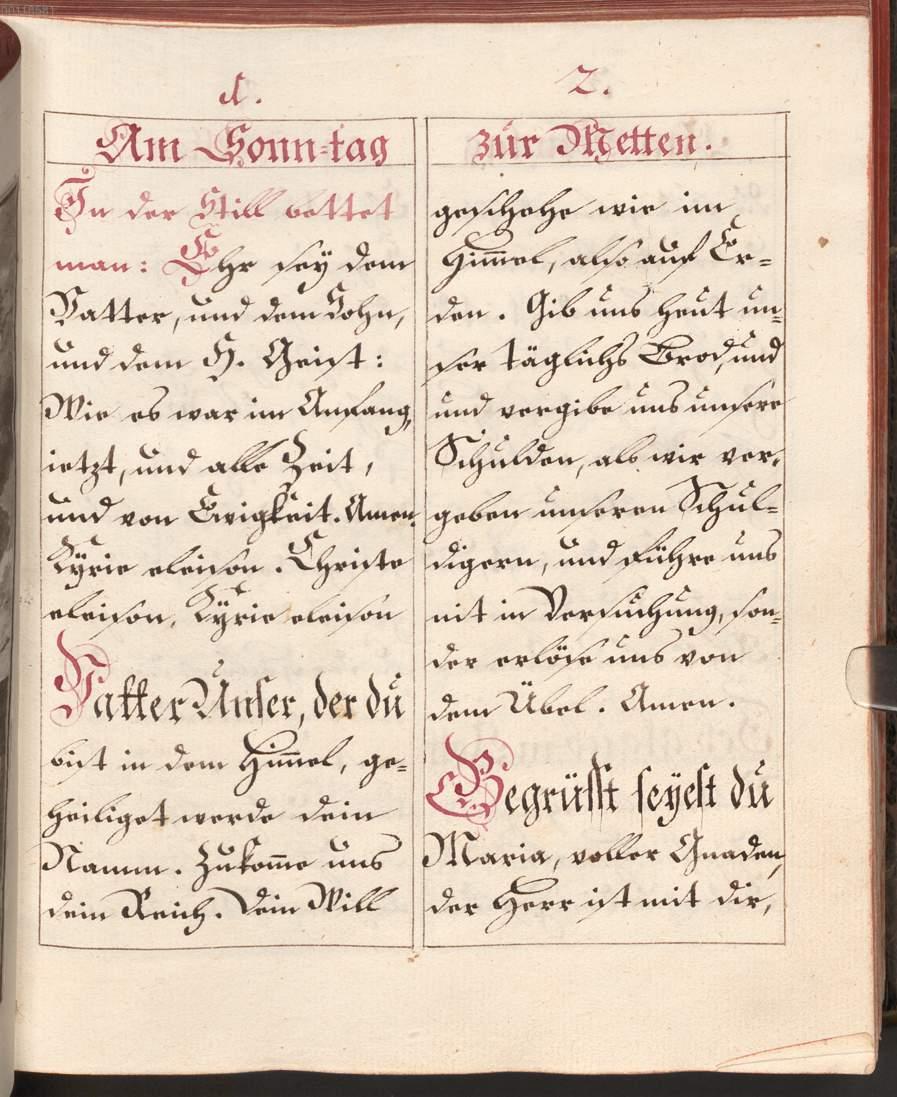 1.
Am Sonn-tag
In der Still bettet
man: Ehr sey dem
Vatter, und dem Sohn,
und dem H. Geist:
Wie es war im Anfang,
ietzt, und alle Zeit,
und von Ewigkeit. Amen.
Kÿrie eleison. Christe
eleison, Kÿrie eleison
Vatter Unser, der du
bist in dem Him̄el, ge=
heiliget werde dein
Namm. Zukom̄e uns
dein Reich. Dein Will
2.
zur Metten.
geschehe wie im
Him̄el, also auf Er=
den. Gib uns heut un=
ser täglichs Brod, und
und vergibe uns unsere
Schulden, als wir ver=
geben unseren Schul=
digern, und führe uns
nit in Versuchung, son=
der erlöse uns von
dem Übel. Amen.
Begrüsst seyest du
Maria, voller Gnaden,
der Herr ist mit dir,